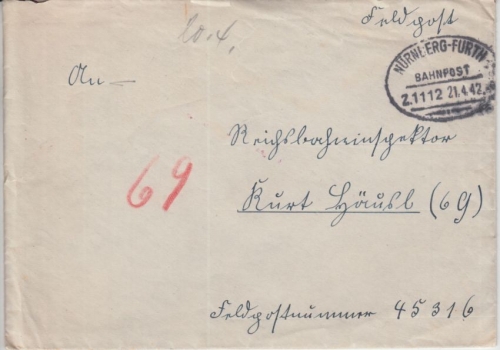 20.4.
Feldpost
NÜRNBERG-FÜRTH
BAHNPOST
Z.1112 21.4.42
An
Reichsbahninspektor
69
Kurt Häusl (69)
Feldpostnummer 45316